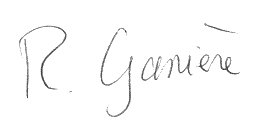 R. Ganière